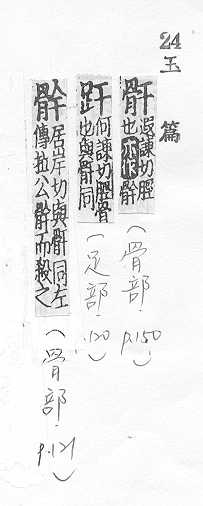 24 玉篇
骭 遐諫切脛
也
(骨部.p.150)
何諫切脛骨
也與骭同
(足部.120)
居岸切與骭同左
傳拉公而殺之
(骨部.p.121)